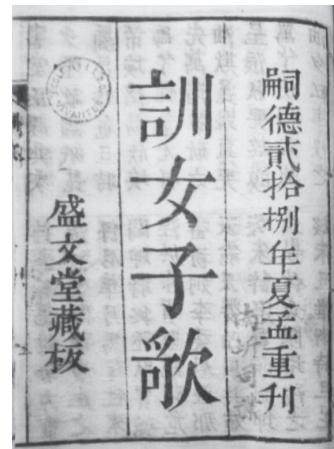 嗣德貳拾捌年夏孟重刊
訓女子歌
盛文堂藏板